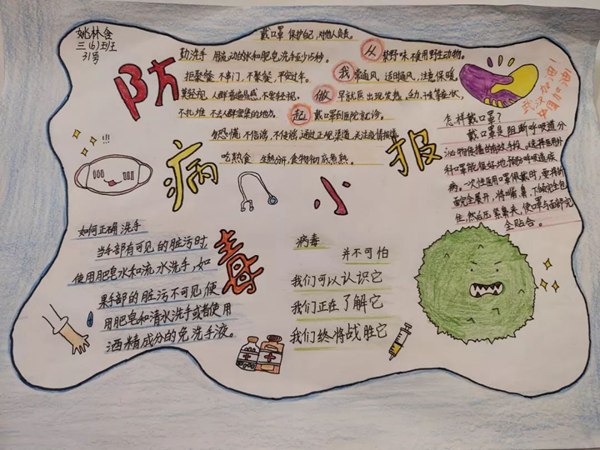 姚林含
三(6)班
31号
戴口罩 保护自己,对他人负责。
勤洗手 用流动的水和肥皂洗手至少15秒。
从 禁野味 不食用野生动物。
拒聚餐 不串门,不聚餐,平安过年。
我 常通风 适时通风,注意保暖。
莫轻视 人群普遍易感,不要轻视。
做 早就医 出现发热,乏力,干咳等症状,
不扎堆 不去人群密集的地方。
起 戴口罩到医院就诊。
勿恐慌 不信谣,不传谣,通过正规渠道,关注疫情报道
吃熟食 生熟分开,食物彻底煮熟。
防
病
毒
小
报
武汉加油
中国加油
怎样戴口罩?
戴口罩是阻断呼吸道分
泌物传播的有效手段,选择医用外
科口罩能很好地预防呼吸道疾
病。一次性医用口罩佩戴时,要将折
面完全展开,将嘴、鼻、下颌完全包
住,然后压紧鼻夹,使口罩与面部完
全贴合。
如何正确洗手
当手部有可见的脏污时
使用肥皂水和流水洗手,如
果手部的脏污不可见,便
用肥皂和清水洗手或者使用
酒精成分的免洗手液。
病毒
并不可怕
我们可以认识它
我们正在了解它
我们终将战胜它